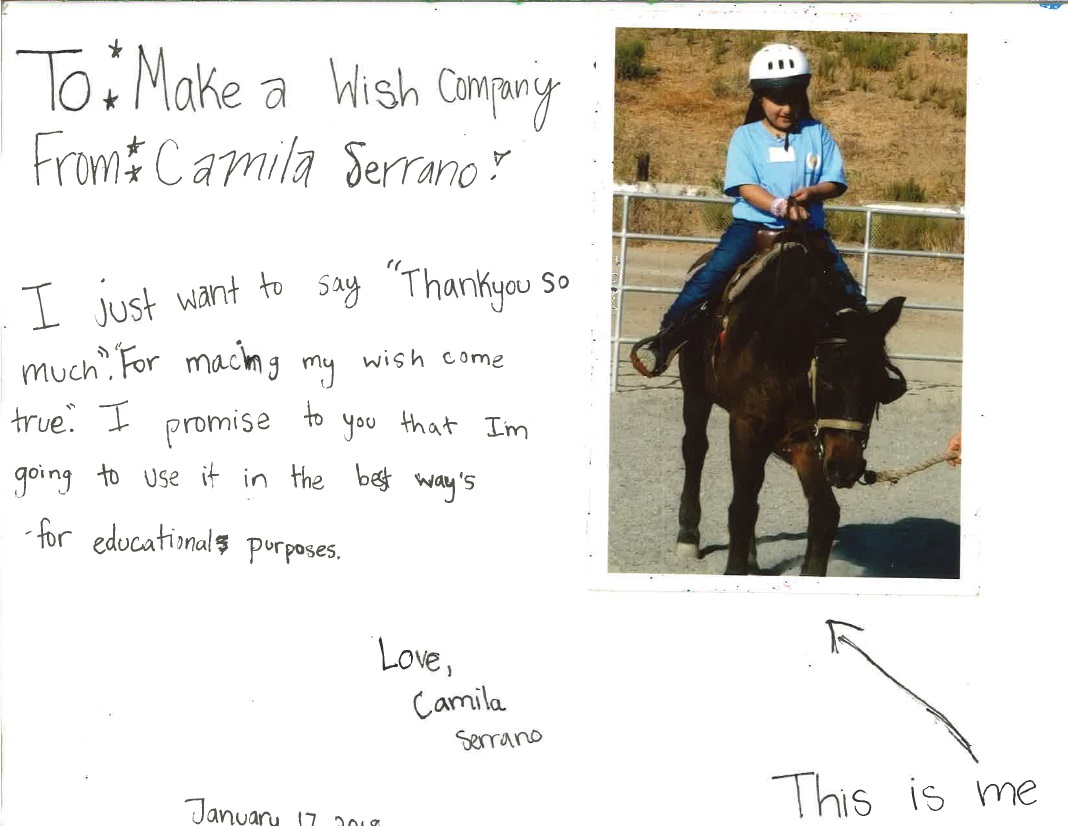 To: Make a Wish Company
From: Camila Serrano!
I just want to say "Thankyou so
much"."For macing my wish come
true." I promise to you that Im
going to use it in the best way's
for educationals purposes.
Love,
Camila
Serrano
January 17, 2018
This is me